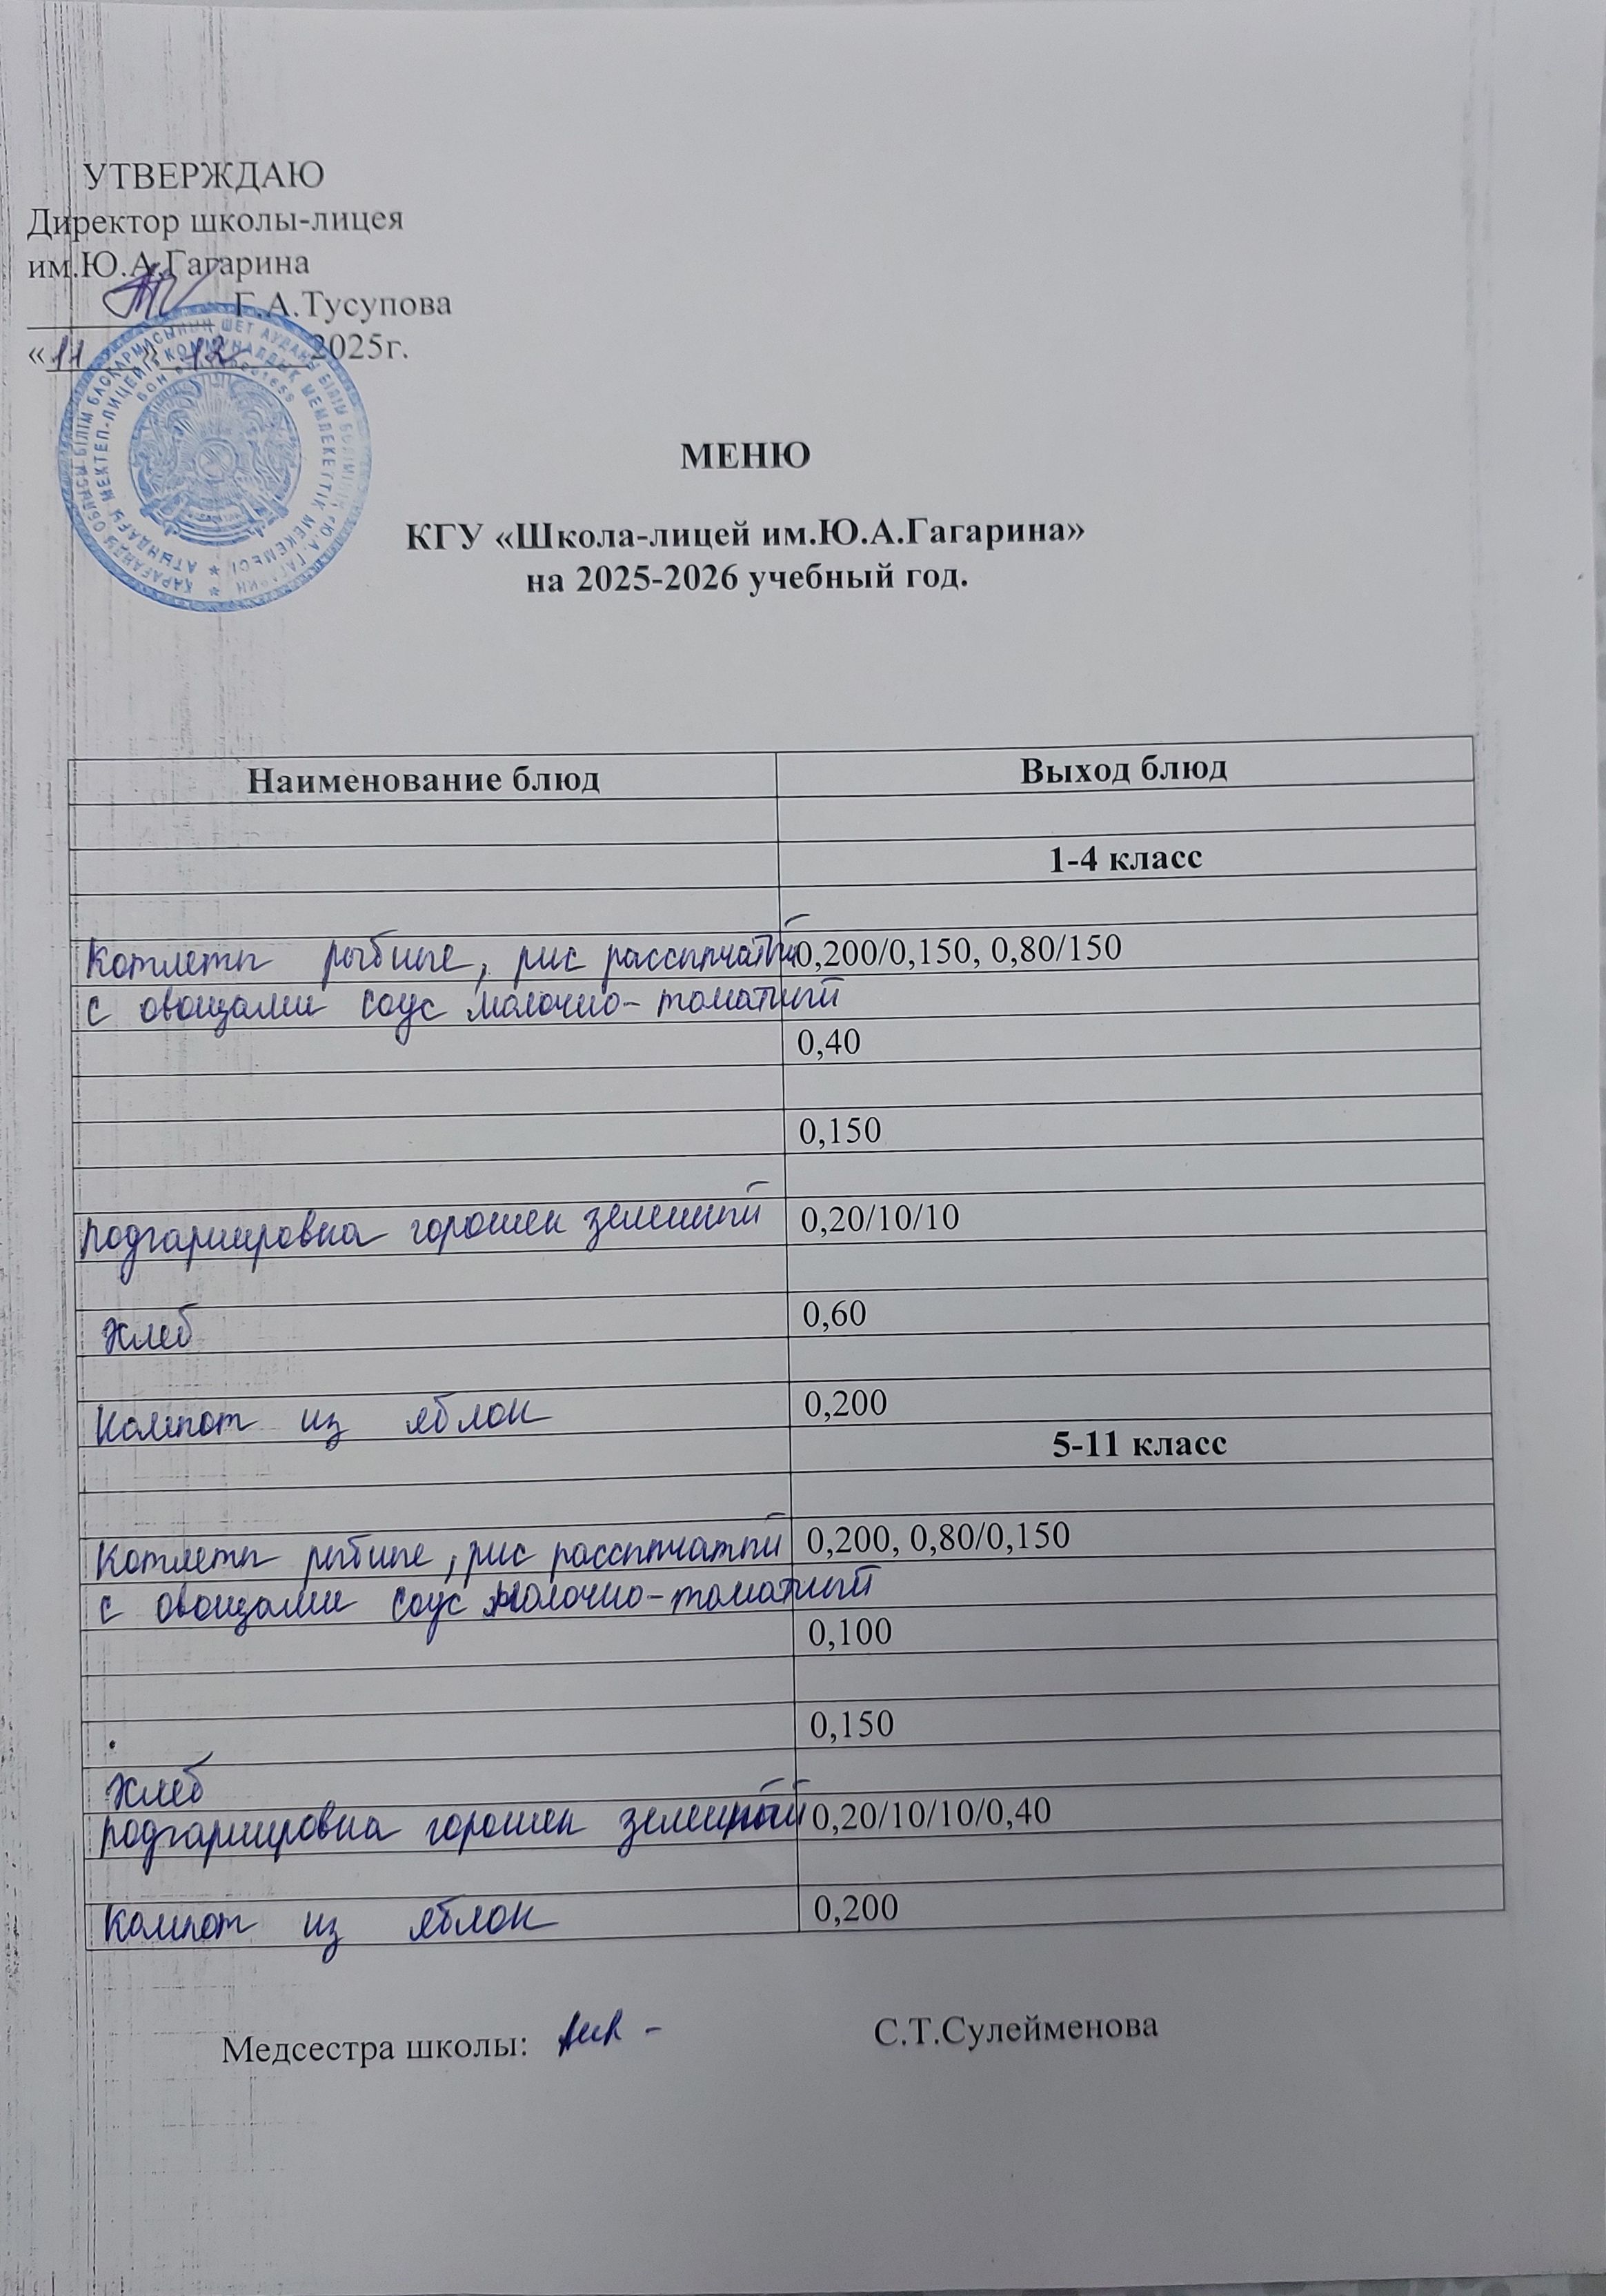 УТВЕРЖДАЮ
Директор школы-лицея
им.Ю.А.Гагарина
Г.А.Тусупова
«11» 12 2025г.
МЕНЮ
КГУ «Школа-лицей им.Ю.А.Гагарина»
на 2025-2026 учебный год.
Наименование блюд Выход блюд
1-4 класс
Котлеты рыбные, рис рассыпчатый 0,200/0,150, 0,80/150
с овощами соус молочно-томатный
0,40
0,150
Подгарнировка горошек зеленый 0,20/10/10
Хлеб 0,60
Компот из яблок 0,200
5-11 класс
Котлеты рыбные, рис рассыпчатый 0,200, 0,80/0,150
с овощами соус молочно-томатный
0,100
0,150
Хлеб
Подгарнировка горошек зеленый 0,20/10/10/0,40
Компот из яблок 0,200
Медсестра школы: С.Т.Сулейменова